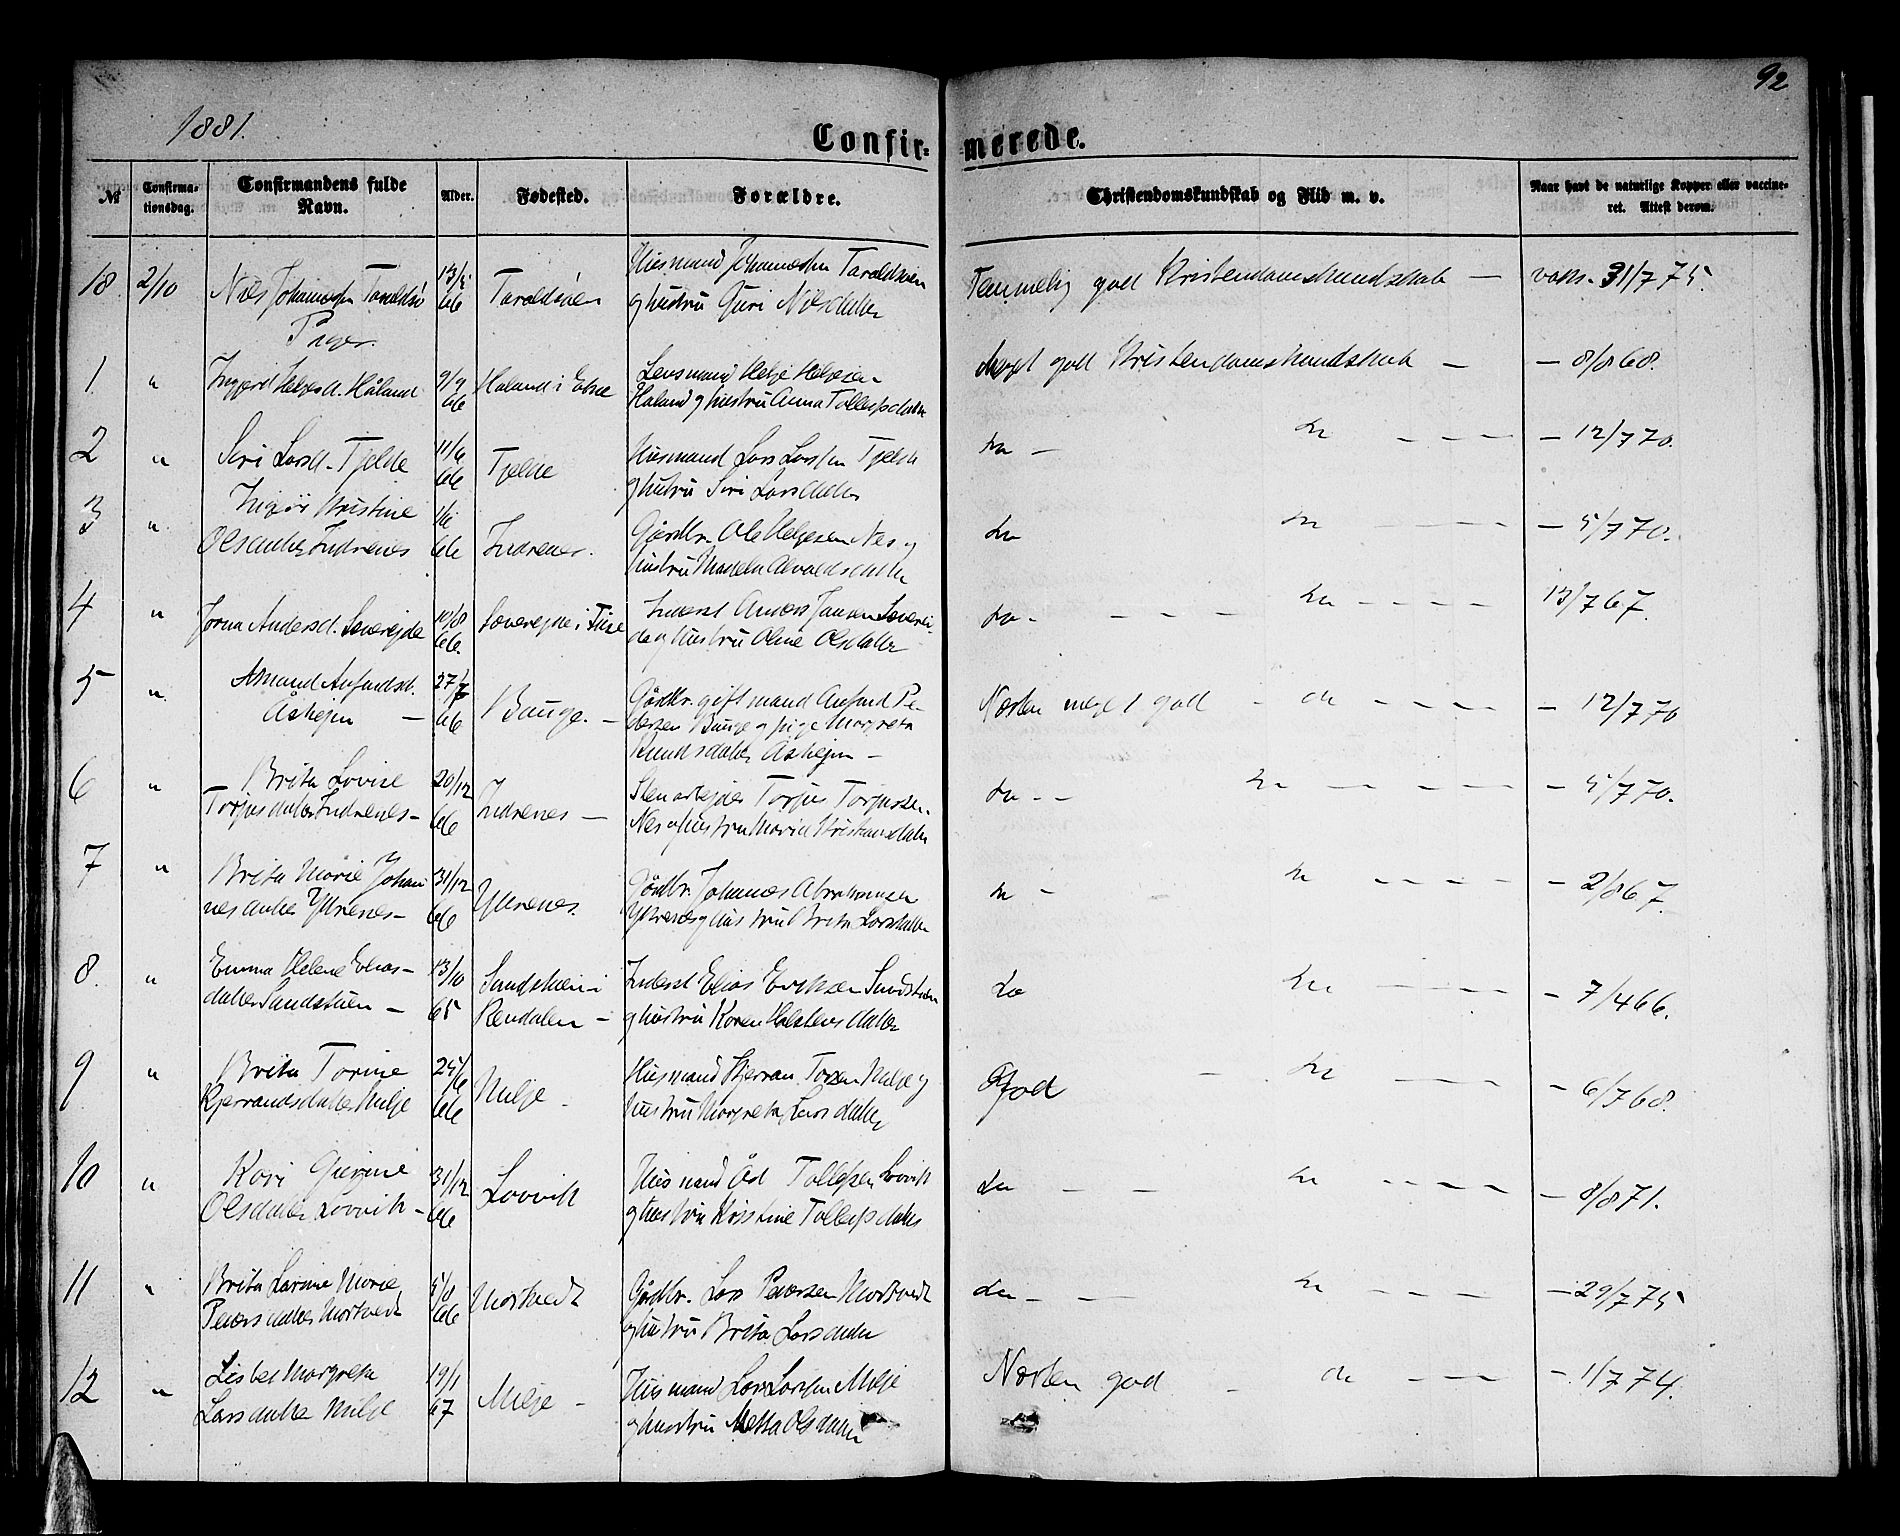 92
1881.
Confir- merede.
№ Confirma-tionsdag. Confirmandens fulde Navn. Alder. Fødested. Forældre. Christendomskundskab og Flid m. v. Naar havt de naturlige Kopper eller vaccine-ret. Attest derom.
18 2/10 Nils Johannesen Taraldsø 66 Taraldsøen Husmand Johannes Taraldsøen
og hustru Guri Nilsdatter Temmelig god Kristendomskundskab — vaks. 31/7 75.
Piger.
1 " Helgesd. Håland 9/9 66 Håland i Etne Lensmand Helge Helgesen
Håland og hustru Anna Tollefsdatter Meget god Kristendomskundskab — — 8/8 68.
2 " Siri Larsd. Tjelde 11/6 66 Tjelde Husmand Lars Larsen Tjelde
og hustru Siri Larsdatter do — do — — — — 12/7 70.
3 " Kristine
Olsdatter Indrenes 66 Indrenes. Gårdbr. Ole Helgesen Nes og
hustru Alvaldsdatter do do — — — — 5/7 70.
4 " Andersd. 10/8 66. Inderst Anders Jansen
og hustru Oline Olsdatter do - — — — do — — — — 13/7 67.
5 " Anfindsd.
Åshejm — 27/7 66 Bauge. — Gårdbr. gift mand Anfind Pe-
dersen Bauge og pige Margreta
Knudsdatter Åshejm — Næsten meget god - do — — — — — 12/7 70
6 " Brita Lovise
Torjusdatter Indrenes — 20/12 66 Indrenes — Stenarbejder Torjus Torjussen
Nes og hustru Maria Kristansdatter do - - do — — — — — 5/7 70.
7 " Brita Marie Johan
nesdatter Ytrenes — 31/12 66 Ytrenes. Gårdbr. Johannes Abrahamsen
Ytrenes og hustru Brita Larsdatter do - do — — — — — 2/8 67.
8. " Emma Helene Elias-
datter Sandstuen — 13/10 65 Sandstuen i
Rendalen — Inderst Elias Eriksen Sandstuen
og hustru Karen Halstensdatter do do — — — — 7/4 66.
9 " Brita Torine
Kjerrandsdatter Milje 66 Milje — Husmand Kjerran Milje og
hustru Margreta Larsdatter God — do — — — 6/7 68.
10 " Kari Gurine
Olsdatter Lovvik — 31/12 66 Lovvik Husmand Tollefsen Lovvik
og hustru Kristine Tollefsdatter do — — do — — — — — 8/8 71.
11 " Brita Larsine Marie
Pedersdatter Mørkvedt 66 Mørkvedt Gårdbr. Lars Pedersen Mørkvedt
og hustru Brita Larsdatter do — — do — — — — 29/7 75
12 " Lisbet Margreta
Larsdatter Milje 19/1 67 Milje — Husmand Lars Larsen Milje
og hustru Metta Olsdatter Næsten god — do — — — 1/7 74.